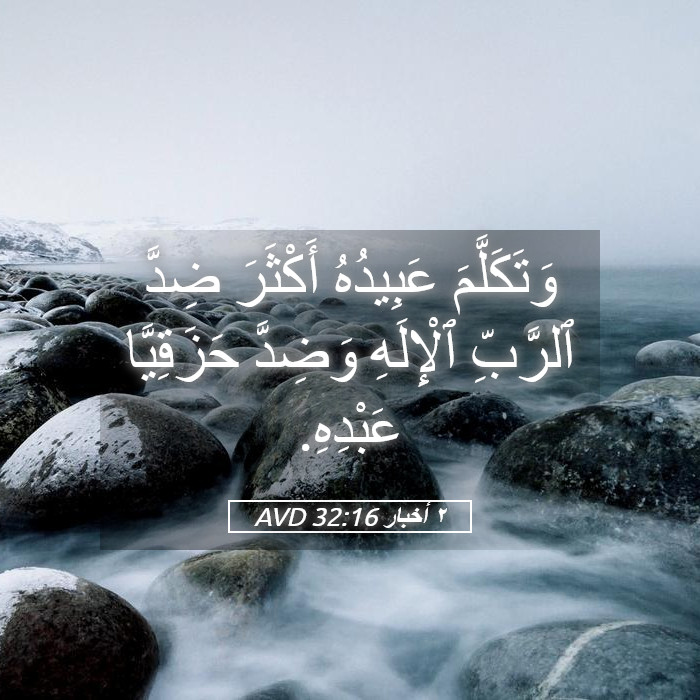 وَتَكَلَّمَ عَبِيدُهُ أَكْثَرَ ضِدَّ
ٱلرَّبِّ ٱلْإِلَهِ وَضِدَّ حَزَقِيَّا
عَبْدِهِ.
٢ أخبار 32:16 AVD